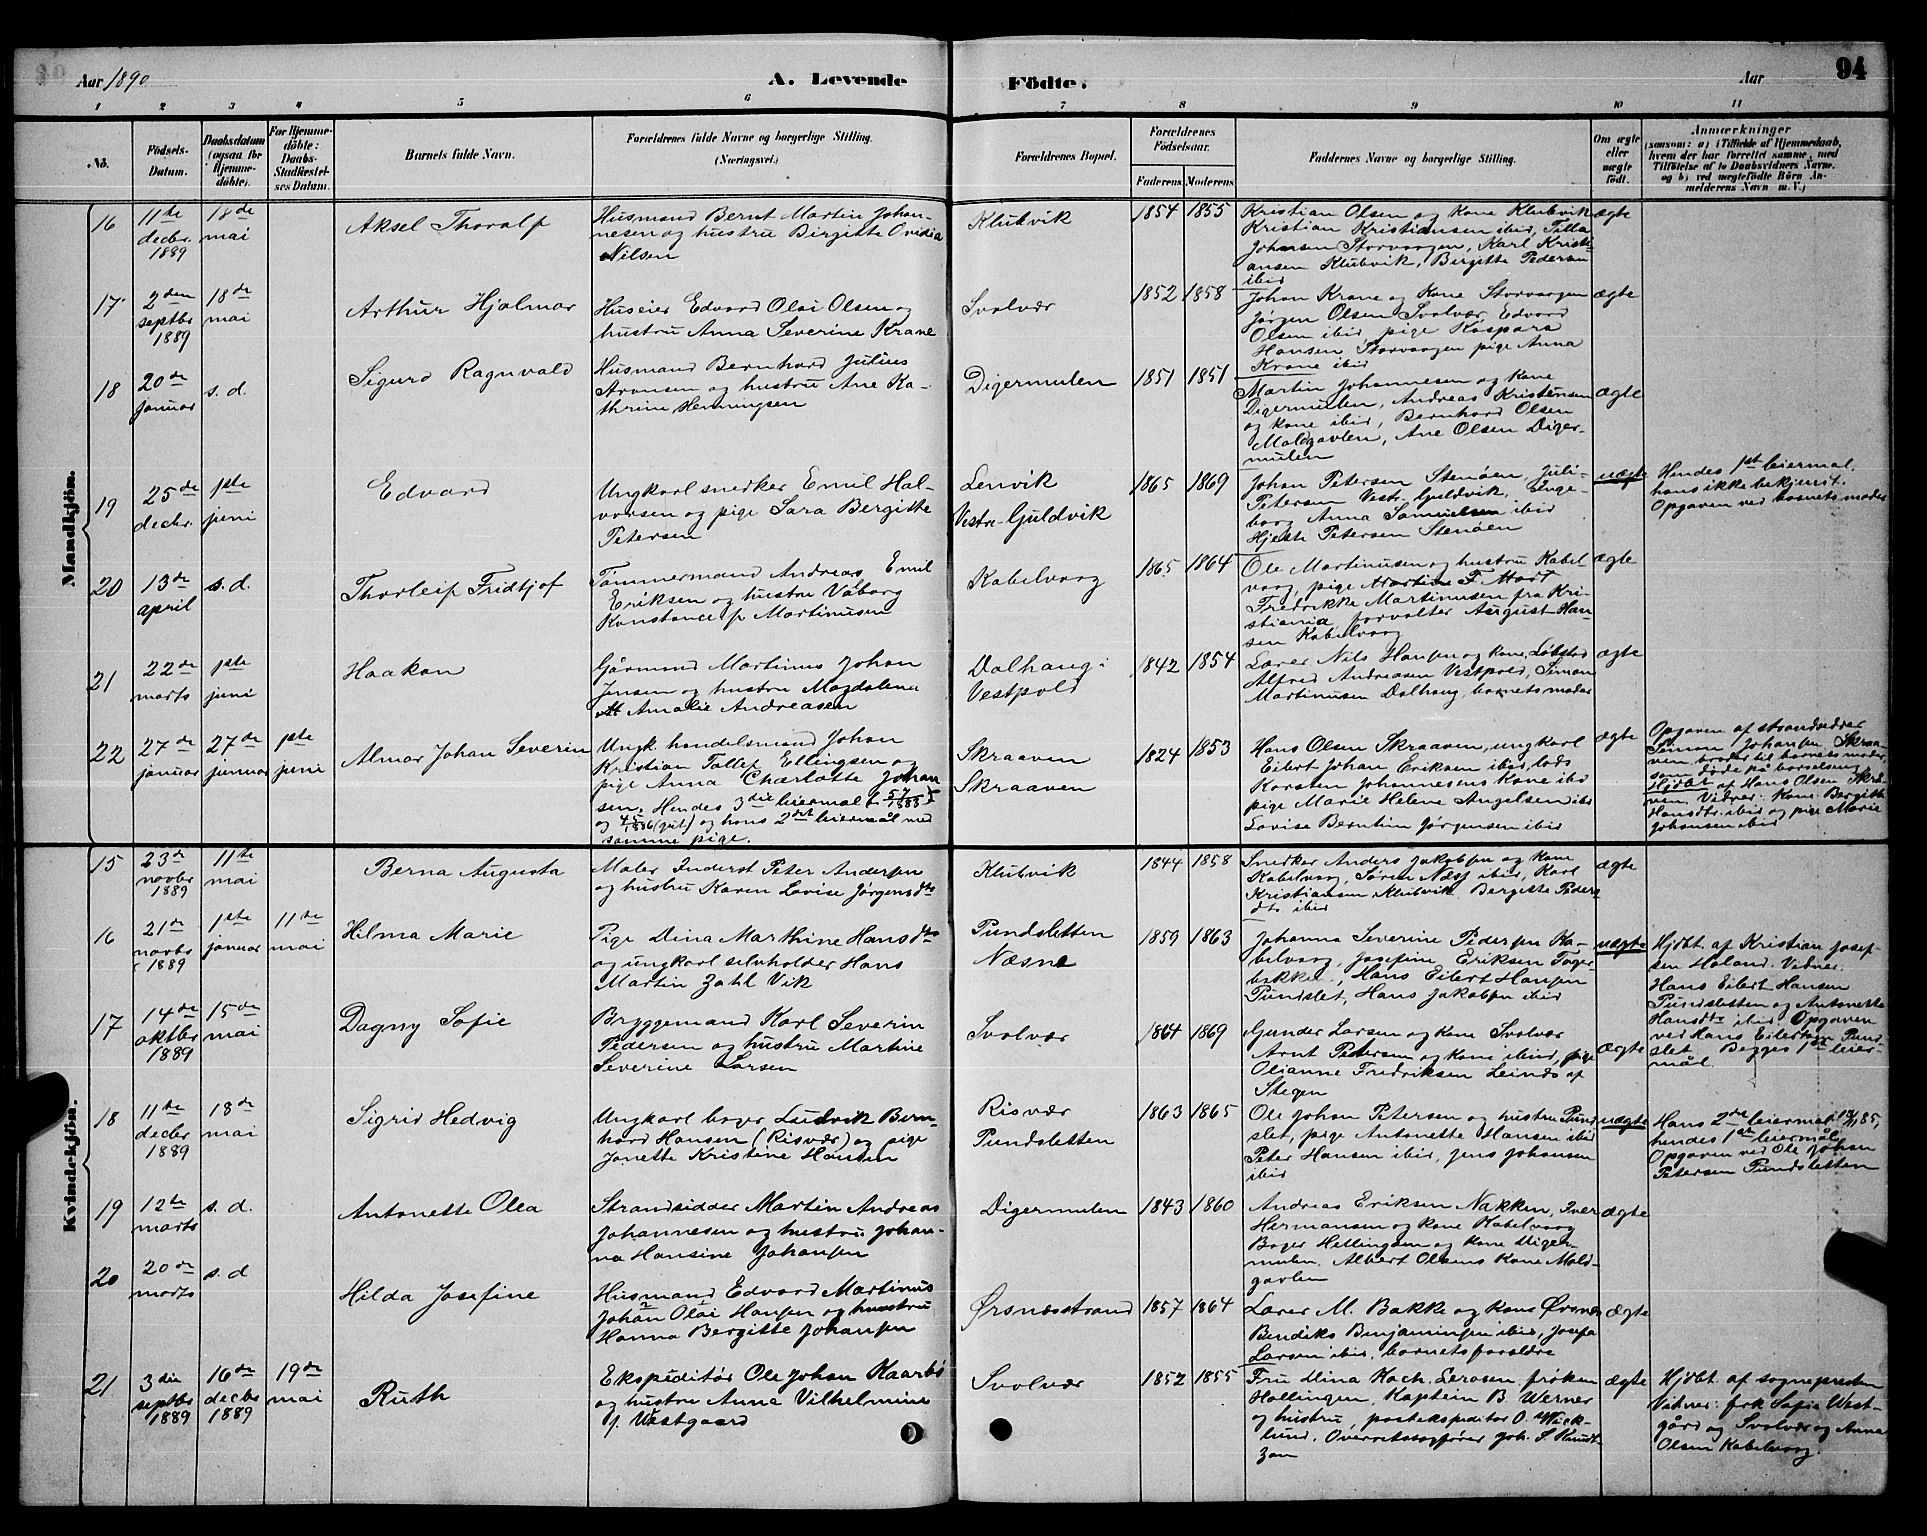 Aar 1890
A. Levende
Födte.
Aar
94
1 2 3 4 5 6 7 8 9 10 11
No.
Födsels-
Datum.
Daabsdatum
(ogsaa for
Hjemme-
døbte).
For Hjemme-
döbte:
Daabs-
Stadfæstel-
ses Datum.
Barnets fulde Navn.
Forældrenes fulde Navne og borgerlige Stilling.
(Næringsvei.)
Forældrenes Bopæl.
Forældrenes
Födselsaar.
Faderens Moderens
Faddernes Navne og borgerlige Stilling.
Om ægte
eller
uægte
født.
Anmærkninger
(saasom: a) i Tilfælde af Hjemmedaab,
hvem der har forrettet samme, med
Tilföielse af to Daabsvidners Navne,
og b) ved uægtefödte Börn An-
melderens Navn m. V.)
Mandkjön.
16
11te
decbr.
1889
18de
mai
Aksel Thoralf
Husmand Bernt Martin Johan-
nesen og hustru Birgitte Ovidia
Nilsen
Klubvik
1854 1855
Kristian Olsen og Kone Klubvik
Kristian Kristiansen ibid,
Johansen Storvaagen, Karl Kristi-
ansen Klubvik, Birgitte Pedersen
ibid
ægte
17
2den
septbr
1889
18de
mai
Arthur Hjalmar
Huseier Edvard Olai Olsen og
hustru Anna Severine Krane
Svolvær
1852 1858
Johan Krane og Kone Storvaagen
Jørgen Olsen Svolvær, Edvard
Olsen ibid, pige Kaspara
Hansen Storvaagen pige Anna
Krane ibid
ægte
18
20de
januar
s. d.
Sigurd Ragnvald
Husmand Bernhard Julius
Aronsen og hustru Ane Ka-
thrine Henningsen
Digermulen
1851 1851
Martin Johannesen og Kone
Digermulen, Andreas Kristensen
og kone ibid, Bernhard Olsen
Moldgavlen, Ane Olsen Diger-
mulen
ægte
19
25de
decbr.
1ste
juni
Edvard
Ungkarl snedker Emil Hal-
vorsen og pige Sara Bergitte
Petersen
Lenvik
Vestre-Guldvik
1865 1869
Johan Petersen Stenøen, Juli-
Petersen Vestr. Guldvik, Inge-
borg Anna Samuelsen ibid
Petersen Stenøen
uægte
Hendes 1st leiermal,
hans ikke bekjendt.
Opgaven ved barnets moder
20
13de
april
s. d.
Thorleif Fridtjof
Tømmermand Andreas Emil
Eriksen og hustru Våborg
Konstance f. Martinusen
Kabelvaag
1865 1864
Ole Martinusen og hustru Kabel-
vaag, pige Martine F. Mart
Fredrikke Martinusen fra Kri-
stiania forvalter August Han-
sen Kabelvaag
ægte
21
22de
marts
1ste
juni
Haakon
Gårmand Martinus Johan
Jensen og hustru Magdalena
Amalie Andreasen
Dalhaug i
Vestpold
1842 1854
Lærer Nils Hansen og Kone, Løbstad
Alfred Andreasen Vestpold, Simon
Martinusen Dalhaug, barnets moder
ægte
22
27de
januar
27de
januar
1ste
juni
Almar Johan Severin
Ungk handelsmand Johan
Kristian Tollef Ellingsen og
pige Anna Charlotte Johan
sen. Hendes 3die leiermal
og hans 2det leiermål med
samme pige.
Skraaven
Skraaven
1824 1853
Hans Olsen Skraaven, ungkarl
Eilert Johan Eriksen ibid, lods
Karsten Johannesens Kone ibid
pige Marie Helene Angelsen ibid
Lovise Berntine Jørgensen ibid
ægte
Opgaven af strandsidder
Simon Johansen Skraa-
ven, broder til barnets moder,
som døde på barselseng
Hjdbt af Hans Olsen Skra-
ven. Vidner: Kone Bergitte
Hansdtr. ibid og pige Marie
Johansen ibid
Kvindekjön.
15
23de
novbr
1889
11te
mai
Berna Augusta
Maler Inderst Peter Andersen
og hustru Karen Lovise Jørgensdtr
Klubvik
1844 1858
Snedker Anders Jakobsen og kone
Kabelvaag, Søren Næss ibid, Karl
Kristiansen Klubvik Bergitte Peders
dtr ibid
ægte
16
21de
novbr
1889
1ste
januar
11te
mai
Hilma Marie
Pige Dina Marthine Hansdtr
og ungkarl selvholder Hans
Martin Zahl Vik
Pundsletten
Næsne
1859 1863
Johanna Severine Pedersen Ka-
belvaag, Josefine Eriksen Fager-
bakke, Hans Eilert Hansen
Pundslet, Hans Jakobsen ibid
uægte
Hjdbt. af Kristian Josef-
sen Holand. Vidner:
Hans Eilert Hansen
Pundsletten og Antonette
Hansdtr ibid. Opgaven
ved Hans Eilertsen Pund-
slet. Begges 1ste leier-
mål.
17
14de
oktbr
1889
15de
mai
Dagny Sofie
Bryggemand Karl Severin
Pedersen og hustru Martine
Severine Larsen
Svolvær
1864 1869
Gunder Larsen og kone Svolvær
Arnt Petersen og kone ibid, pige
Olianne Fredriksen Leinds af
Stegen
Ægte
18
11te
decbr
1889
18de
mai
Sigrid Hedvig
Ungkarl bager Ludvik Bern-
hard Hansen (Risvær) og pige
Janette Kristine Hansen
Risvær
Pundsletten
1863 1865
Ole Johan Petersen og hustru Pund
slet, pige Antonette Hansen ibid
Peter Hansen ibid, Jens Johansen
ibid
uægte
Hans 2de leiermal
hendes 1st leiermål
Opgaven ved Ole Johan
Petersen Pundsletten
19
12te
marts
s. d.
Antonette Olea
Strandsidder Martin Andreas
Johannesen og hustru Johan-
na Hansine Johansen
Digermulen
1843 1860
Andreas Eriksen Nakken, Iver
Hermansen og kone Kabelvaag
Bager Hellingsen og kone Diger-
mulen, Albert Olsens Kone Mold-
gavlen
ægte
20
20de
marts
s. d
Hilda Josefine
Husmand Edvard Martinus
Johan Olai Hansen og hustru
Hanna Bergitte Johansen
Ørsnæsstrand
1857 1864
Lærer M. Bakke og kone Ørsnæs
Bendiks Benjaminsen ibid, Josefa
Larsen ibid, barnets forældre
ægte
21
3die
septbr
1889
16de
decbr
1889
19de
mai
Ruth
Ekspeditør Ole Johan Kaarbø
og hustru Anna Vilhelmine
f. Westgaard
Svolvær
1852 1855
Fru Mina Koch. Lerosen, frøken
Hollingen, Kaptein B. Werner
og hustru, postekspeditør O. Wick-
lund, Overretssagfører Joh. S. Knudt-
zon
ægte
Hjdbt af sognepresten
Vidner: frk Sofie West-
gård og Svolvær og Anna
Olsen Kabelvaag.